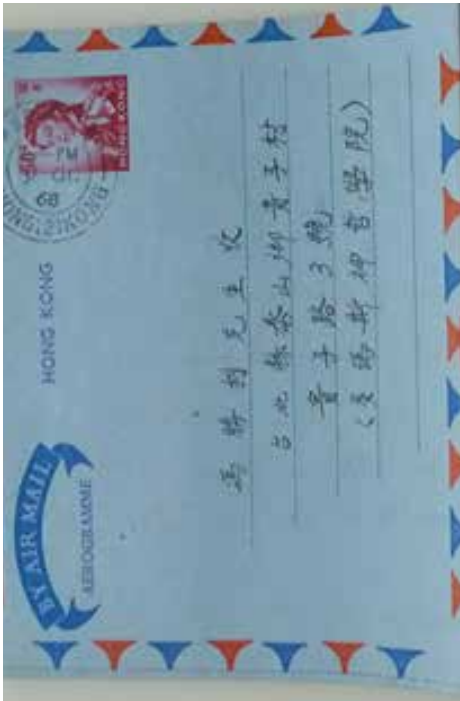 BY AIR MAIL
AEROGRAMME
HONG KONG
HONG KONG
PM
68
先生 收
台北縣泰山鄉貴子村
貴子路3號
(多瑪斯神哲學院)